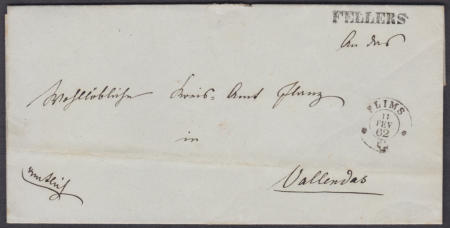 FELLERS
An das
Wohllöbliche Kreis-Amt Ilanz
FLIMS
11
FEV
62
in
Vallendas
amtlich